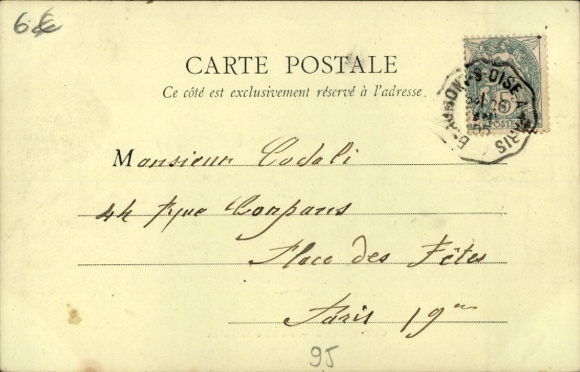 6€
CARTE POSTALE
Ce côté est exclusivement réservé à l'adresse
BEAUMONT-S-OISE A PARIS
26
05
POSTES
Monsieur Codali
44 rue Compans
Place des Fêtes
Paris 19e
95